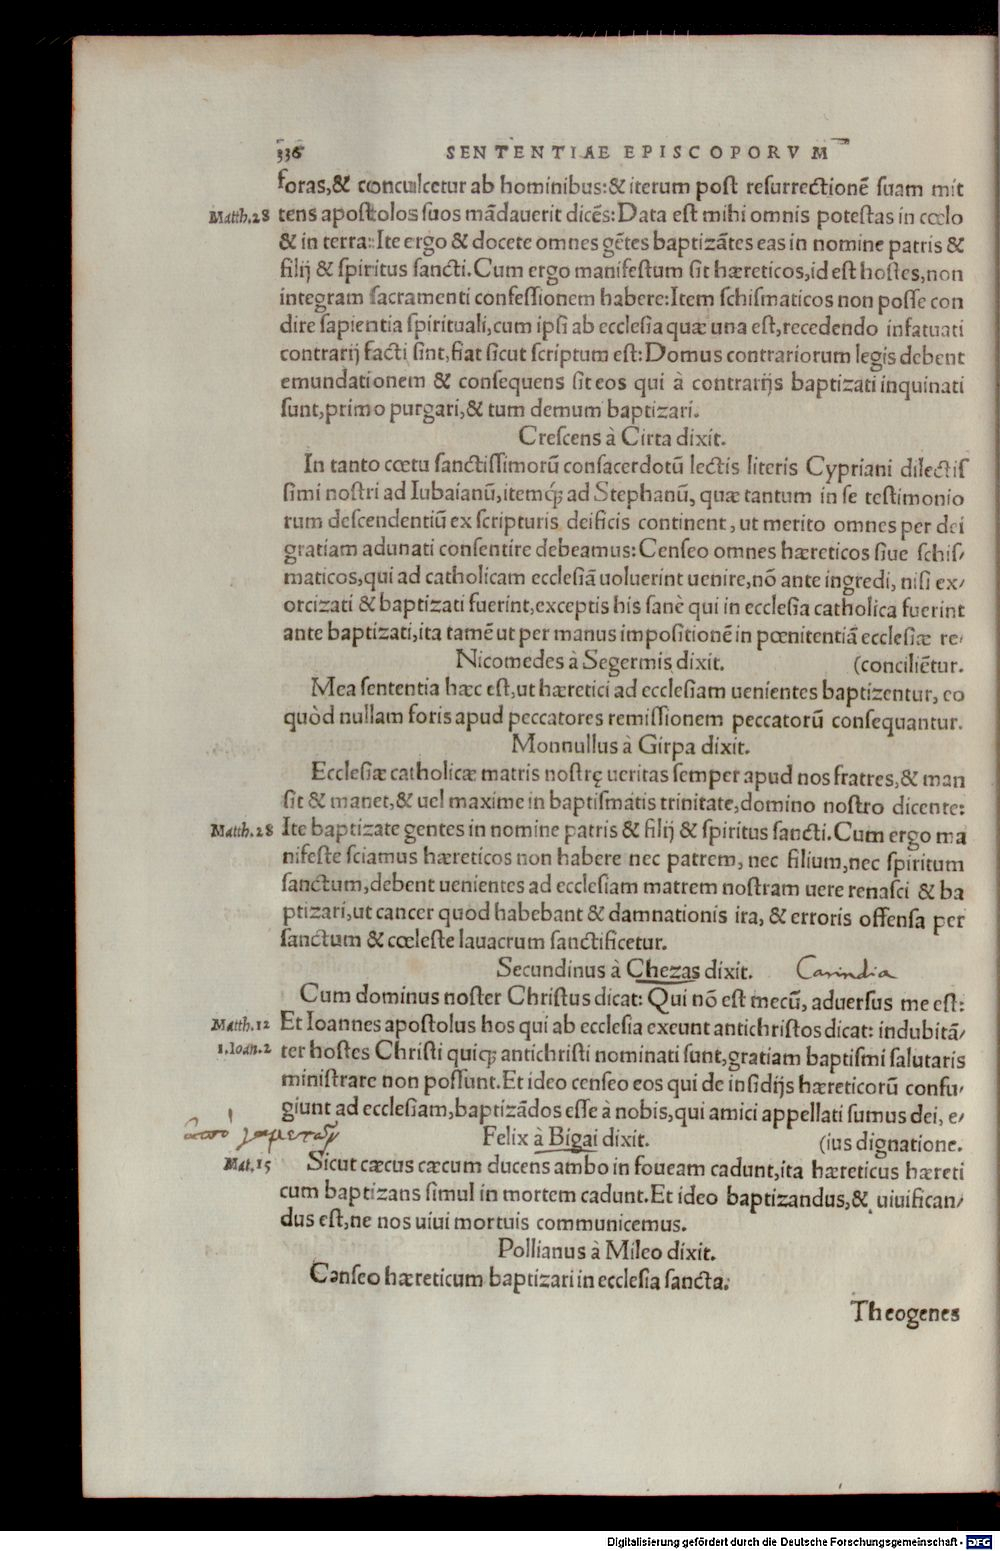 336 SENTENTIAE EPISCOPORVM
foras,& conculcetur ab hominibus:& iterum post resurrectionē suam mit
Matth.28 tens apostolos suos mādauerit dicēs:Data est mihi omnis potestas in cœlo
& in terra: Ite ergo & docete omnes gētes baptizātes eas in nomine patris &
filij & spiritus sancti.Cum ergo manifestum sit hæreticos,id est hostes,non
integram sacramenti confessionem habere:Item schismaticos non posse con
dire sapientia spirituali,cum ipsi ab ecclesia quæ una est,recedendo infatuati
contrarij facti sint,fiat sicut scriptum est:Domus contrariorum legis debent
emundationem & consequens sit eos qui à contrarijs baptizati inquinati
sunt,primo purgari,& tum demum baptizari.
Crescens à Cirta dixit.
In tanto cœtu sanctissimorū consacerdotū lectis literis Cypriani dilectis
simi nostri ad Iubaianū,itemq́; ad Stephanū, quæ tantum in se testimonio
rum descendentiū ex scripturis deificis continent, ut merito omnes per dei
gratiam adunati consentire debeamus:Censeo omnes hæreticos siue schis/
maticos,qui ad catholicam ecclesiā uoluerint uenire,nō ante ingredi, nisi ex/
orcizati & baptizati fuerint,exceptis his sanè qui in ecclesia catholica fuerint
ante baptizati,ita tamē ut per manus impositionē in pœnitentiā ecclesiæ re/
Nicomedes à Segermis dixit. (conciliētur.
Mea sententia hæc est,ut hæretici ad ecclesiam uenientes baptizentur, eo
quòd nullam foris apud peccatores remissionem peccatorū consequantur.
Monnullus à Girpa dixit.
Ecclesiæ catholicæ matris nostrę ueritas semper apud nos fratres,& man
sit & manet,& uel maxime in baptismatis trinitate,domino nostro dicente:
Matth.28 Ite baptizate gentes in nomine patris & filij & spiritus sancti.Cum ergo ma
nifeste sciamus hæreticos non habere nec patrem, nec filium,nec spiritum
sanctum,debent uenientes ad ecclesiam matrem nostram uere renasci & ba
ptizari,ut cancer quod habebant & damnationis ira, & erroris offensa per
sanctum & cœleste lauacrum sanctificetur.
Secundinus à Chezas dixit. Carindia
Cum dominus noster Christus dicat: Qui nō est mecū, aduersus me est:
Matth.12 Et Ioannes apostolus hos qui ab ecclesia exeunt antichristos dicat: indubitā/
1.Ioan.2 ter hostes Christi quiq; antichristi nominati sunt,gratiam baptismi salutaris
ministrare non possunt.Et ideo censeo eos qui de insidijs hæreticorū confu/
giunt ad ecclesiam,baptizādos esse à nobis,qui amici appellati sumus dei, e/
Felix à Bigai dixit. (ius dignatione.
Mat.15 Sicut cæcus cæcum ducens ambo in foueam cadunt,ita hæreticus hæreti
cum baptizans simul in mortem cadunt.Et ideo baptizandus,& uiuifican/
dus est,ne nos uiui mortuis communicemus.
Pollianus à Mileo dixit.
Censeo hæreticum baptizari in ecclesia sancta.
Theogenes
Digitalisierung gefördert durch die Deutsche Forschungsgemeinschaft - DFG